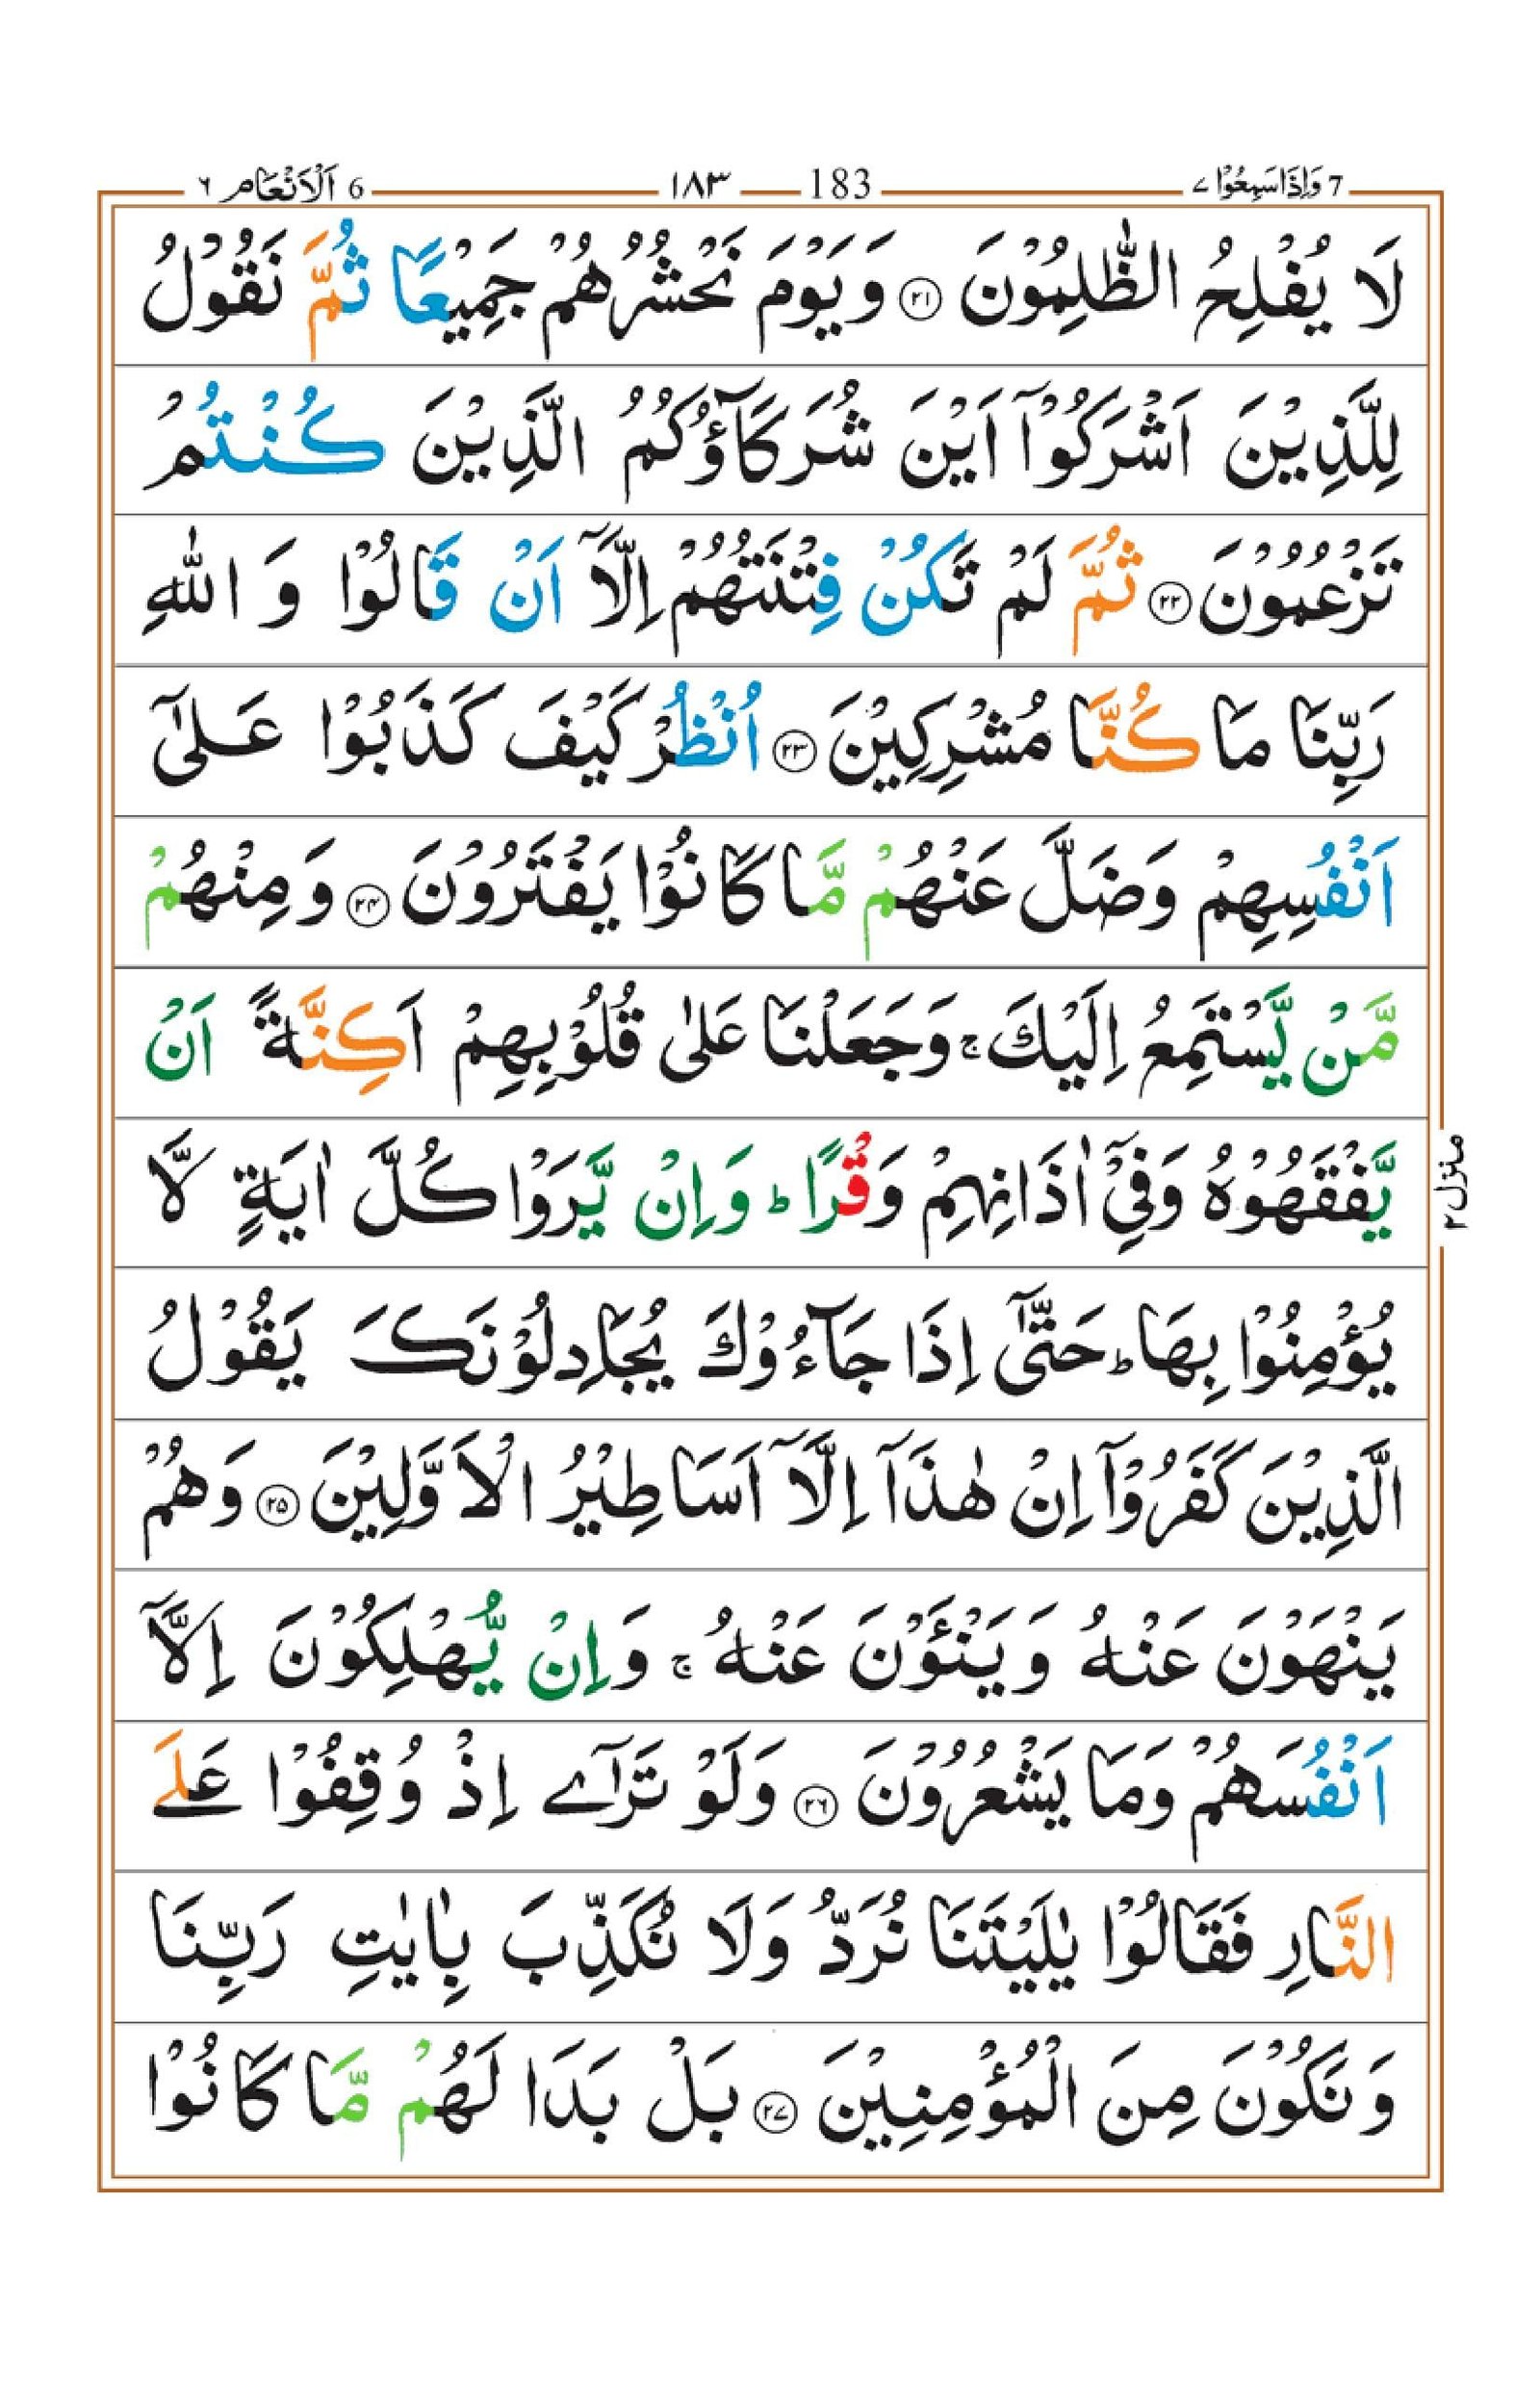 7 وَاِذَا سَمِعُوْا ۷ 183 ۱۸۳ 6 اَلْاَنْعَام ۶
لَا يُفْلِحُ الظّٰلِمُوْنَ ۝۲۱ وَيَوْمَ نَحْشُرُهُمْ جَمِيْعًا ثُمَّ نَقُوْلُ
لِلَّذِيْنَ اَشْرَكُوْۤا اَيْنَ شُرَكَآؤُكُمُ الَّذِيْنَ كُنْتُمْ
تَزْعُمُوْنَ ۝۲۲ ثُمَّ لَمْ تَكُنْ فِتْنَتُهُمْ اِلَّاۤ اَنْ قَالُوْا وَ اللّٰهِ
رَبِّنَا مَا كُنَّا مُشْرِكِيْنَ ۝۲۳ اُنْظُرْ كَيْفَ كَذَبُوْا عَلٰۤى
اَنْفُسِهِمْ وَضَلَّ عَنْهُمْ مَّا كَانُوْا يَفْتَرُوْنَ ۝۲۴ وَمِنْهُمْ
مَّنْ يَّسْتَمِعُ اِلَيْكَ ۚ وَجَعَلْنَا عَلٰى قُلُوْبِهِمْ اَكِنَّةً اَنْ
يَّفْقَهُوْهُ وَفِيْۤ اٰذَانِهِمْ وَقْرًا ؕ وَاِنْ يَّرَوْا كُلَّ اٰيَةٍ لَّا
يُؤْمِنُوْا بِهَا ؕ حَتّٰۤى اِذَا جَآءُوْكَ يُجَادِلُوْنَكَ يَقُوْلُ
الَّذِيْنَ كَفَرُوْۤا اِنْ هٰذَاۤ اِلَّاۤ اَسَاطِيْرُ الْاَوَّلِيْنَ ۝۲۵ وَهُمْ
يَنْهَوْنَ عَنْهُ وَيَنْـَٔوْنَ عَنْهُ ۚ وَاِنْ يُّهْلِكُوْنَ اِلَّاۤ
اَنْفُسَهُمْ وَمَا يَشْعُرُوْنَ ۝۲۶ وَلَوْ تَرٰۤى اِذْ وُقِفُوْا عَلَى
النَّارِ فَقَالُوْا يٰلَيْتَنَا نُرَدُّ وَلَا نُكَذِّبَ بِاٰيٰتِ رَبِّنَا
وَنَكُوْنَ مِنَ الْمُؤْمِنِيْنَ ۝۲۷ بَلْ بَدَا لَهُمْ مَّا كَانُوْا
منزل ۲